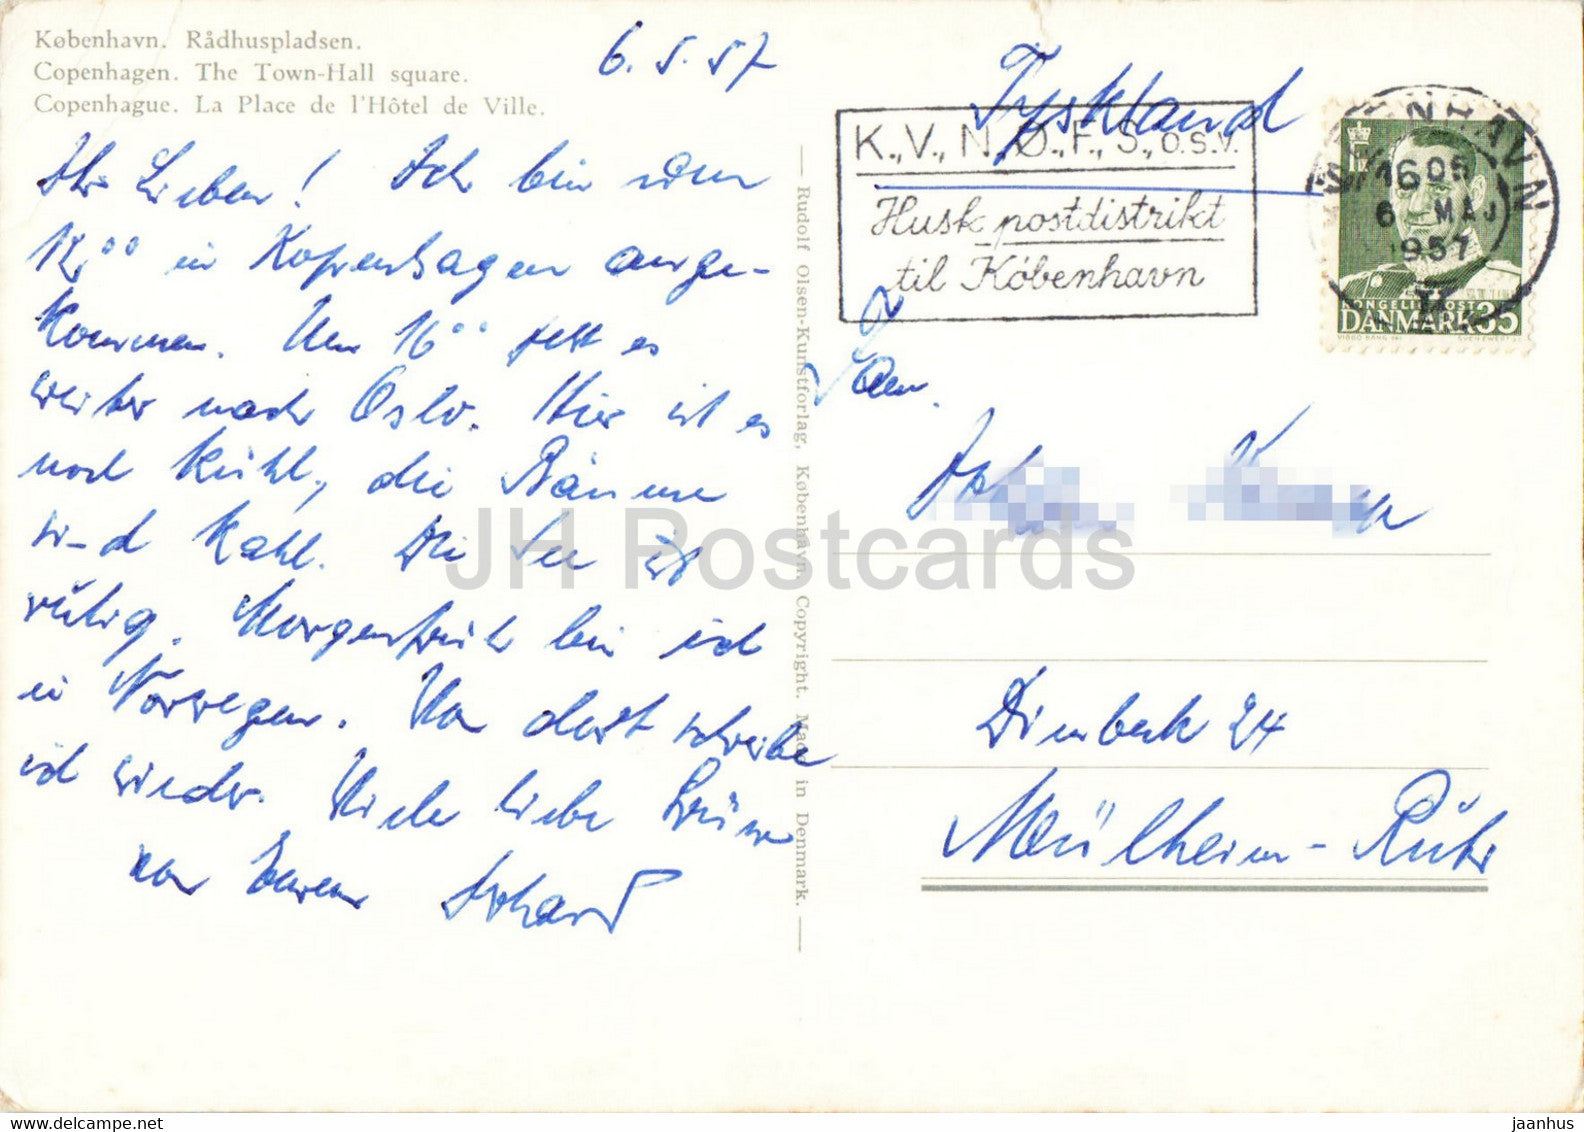 København. Rådhuspladsen.
Copenhagen. The Town-Hall square.
Copenhague. La Place de l'Hôtel de Ville.
6. 5. 57
Ihr Lieben! Ich bin um
12,00 in Kopenhagen ange-
kommen. Um 16 00 geht es
weiter nach Oslo. Hier ist es
noch kühl, die Bäume
sind kahl. Die See ist
ruhig. Morgenfrüh bin ich
in Norwegen. Von dort schreibe
ich wieder. Viele liebe Grüsse
von Eurem
Rudolf Olsen-Kunstforlag, København. Copyright. Made in Denmark.
Tyskland
K., V., N., Ø., F., S., o.s.v.
Husk postdistrikt
til København
KØBENHAVN
1605
6 MAJ
1957
KONGELIG POST
DANMARK 35
VIGGO BANG INV.
SVEN EWERT SC.
Dimbeck 24
Mülheim-Ruhr
JH Postcards
jaanhus © delcampe.net